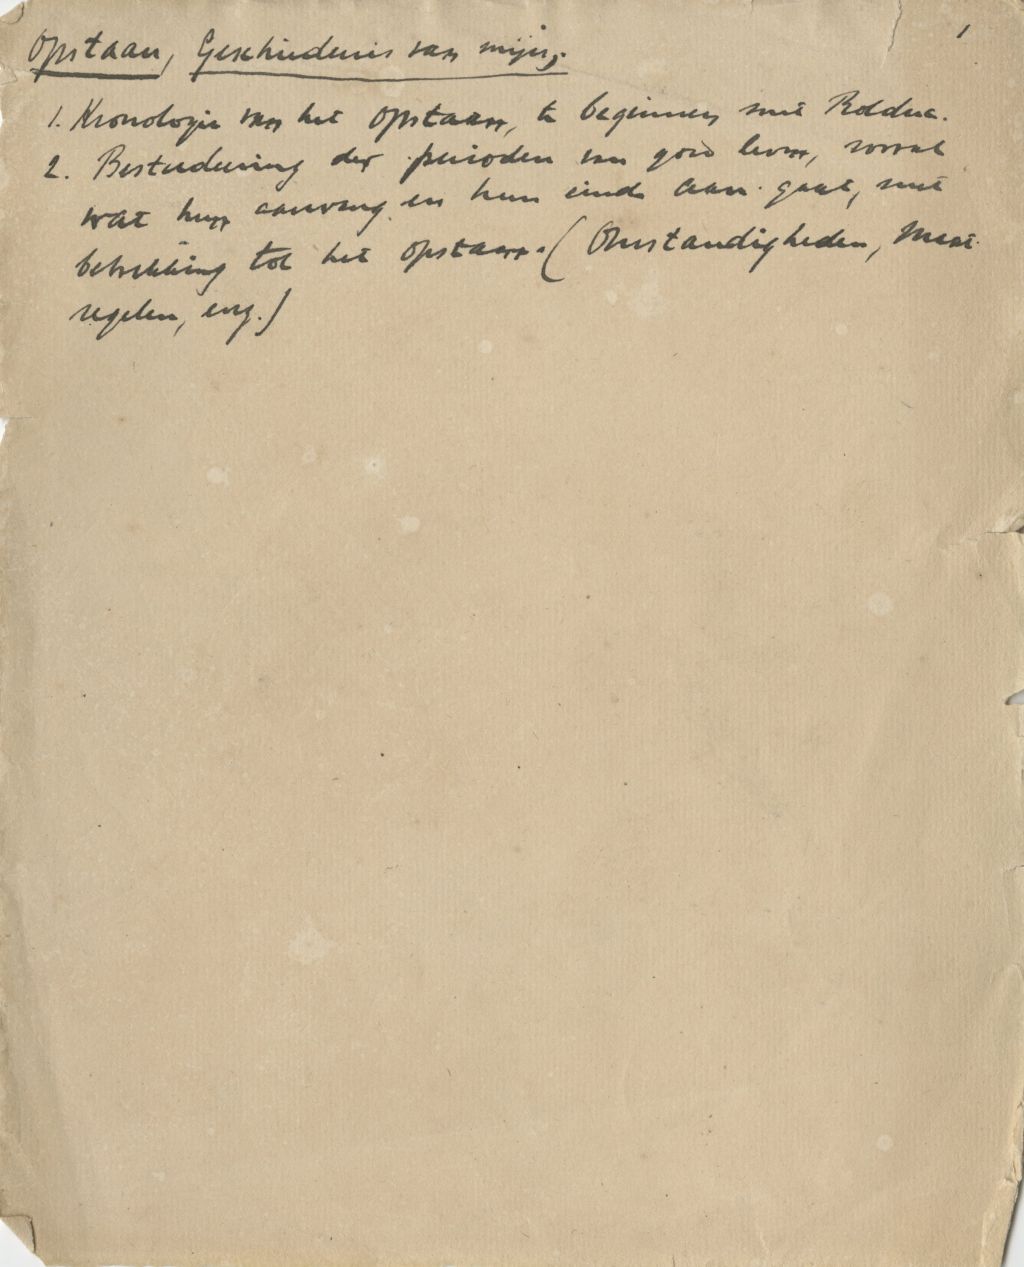 1
Opstaan, Geschiedenis van mijn,.
1. Kronologie van het opstaan, te beginnen met Rolduc.
2. Bestudeering der perioden van goed leven, vooral
wat hun aanvang en hun einde aan gaat, met
betrekking tot het opstaan. (Omstandigheden, Maat-
regelen, enz.)